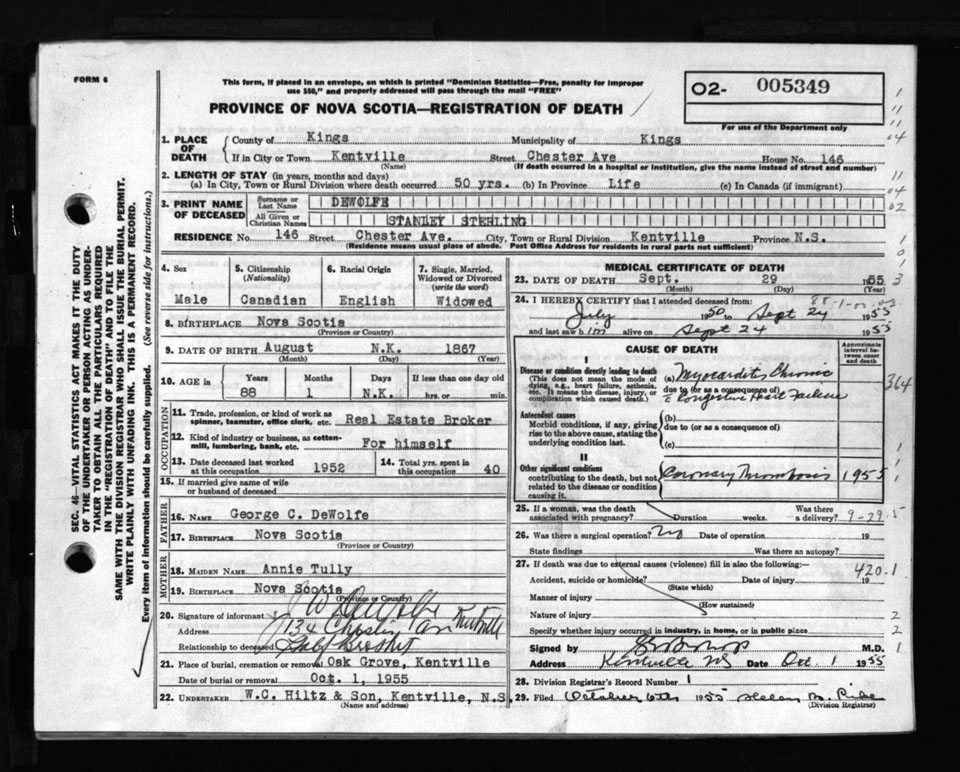 FORM 6
This form, if placed in an envelope, on which is printed "Dominion Statistics—Free, penalty for improper
use $50," and properly addressed will pass through the mail "FREE"
PROVINCE OF NOVA SCOTIA—REGISTRATION OF DEATH
02- 005349
For use of the Department only
1. PLACE OF DEATH County of Kings Municipality of Kings
If in City or Town Kentville Street Chester Ave House No. 146
(Name) (If death occurred in a hospital or institution, give the name instead of street and number)
2. LENGTH OF STAY (in years, months and days)
(a) In City, Town or Rural Division where death occurred 50 yrs. (b) In Province Life (c) In Canada (if immigrant)
3. PRINT NAME OF DECEASED Surname or Last Name DEWOLFE
All Given or Christian Names STANLEY STERLING
RESIDENCE No. 146 Street Chester Ave. City, Town or Rural Division Kentville Province N.S.
(Residence means usual place of abode. Post Office Address for residents in rural parts not sufficient)
4. Sex Male
5. Citizenship (Nationality) Canadian
6. Racial Origin English
7. Single, Married, Widowed or Divorced (write the word) Widowed
8. BIRTHPLACE Nova Scotia
(Province or Country)
9. DATE OF BIRTH August N.K. 1867
(Month) (Day) (Year)
10. AGE in Years Months Days If less than one day old
88 1 N.K. hrs. or min.
OCCUPATION
11. Trade, profession, or kind of work as spinner, teamster, office clerk, etc. Real Estate Broker
12. Kind of industry or business, as cotton-mill, lumbering, bank, etc. For himself
13. Date deceased last worked at this occupation 1952
14. Total yrs. spent in this occupation 40
15. If married give name of wife or husband of deceased
FATHER
16. NAME George C. DeWolfe
17. BIRTHPLACE Nova Scotia
(Province or Country)
MOTHER
18. MAIDEN NAME Annie Tully
19. BIRTHPLACE Nova Scotia
(Province or Country)
20. Signature of informant J W DeWolfe
Address 134 Chester Av Kentville
Relationship to deceased Half Brother
21. Place of burial, cremation or removal Oak Grove, Kentville
Date of burial or removal Oct. 1, 1955
22. UNDERTAKER W.C. Hiltz & Son, Kentville, N.S.
(Name and address)
MEDICAL CERTIFICATE OF DEATH
23. DATE OF DEATH Sept. 29 1955
(Month) (Day) (Year)
24. I HEREBY CERTIFY that I attended deceased from:
July 1950 to Sept 24 1955
and last saw him alive on Sept 24 1955
CAUSE OF DEATH
Approximate interval between onset and death
I
Disease or condition directly leading to death
(This does not mean the mode of dying, e.g., heart failure, asthenia, etc. It means the disease, injury, or complication which caused death.)
(a) Myocarditis Chronic
due to (or as a consequence of)
c Congestive Heart Failure
364
Antecedent causes
Morbid conditions, if any, giving rise to the above cause, stating the underlying condition last.
(b)
due to (or as a consequence of)
(c)
II
Other significant conditions
contributing to the death, but not related to the disease or condition causing it.
Coronary Thrombosis 1955
25. If a woman, was the death associated with pregnancy? Duration weeks. Was there a delivery? 9-29-5
26. Was there a surgical operation? No Date of operation 19
State findings Was there an autopsy?
27. If death was due to external causes (violence) fill in also the following:—
420.1
Accident, suicide or homicide? Date of injury 19
(State which)
Manner of injury
(How sustained)
Nature of injury
Specify whether injury occurred in industry, in home, or in public place
Signed by M.D.
Address Kentville NS Date Oct. 1 1955
28. Division Registrar's Record Number 1
29. Filed October 6th 1955
(Division Registrar)
SEC. 46—VITAL STATISTICS ACT MAKES IT THE DUTY
OF THE UNDERTAKER OR PERSON ACTING AS UNDER-
TAKER TO OBTAIN ALL THE PARTICULARS REQUIRED
IN THE "REGISTRATION OF DEATH" AND TO FILE THE
SAME WITH THE DIVISION REGISTRAR WHO SHALL ISSUE THE BURIAL PERMIT.
WRITE PLAINLY WITH UNFADING INK. THIS IS A PERMANENT RECORD.
Every item of information should be carefully supplied. (See reverse side for instructions.)